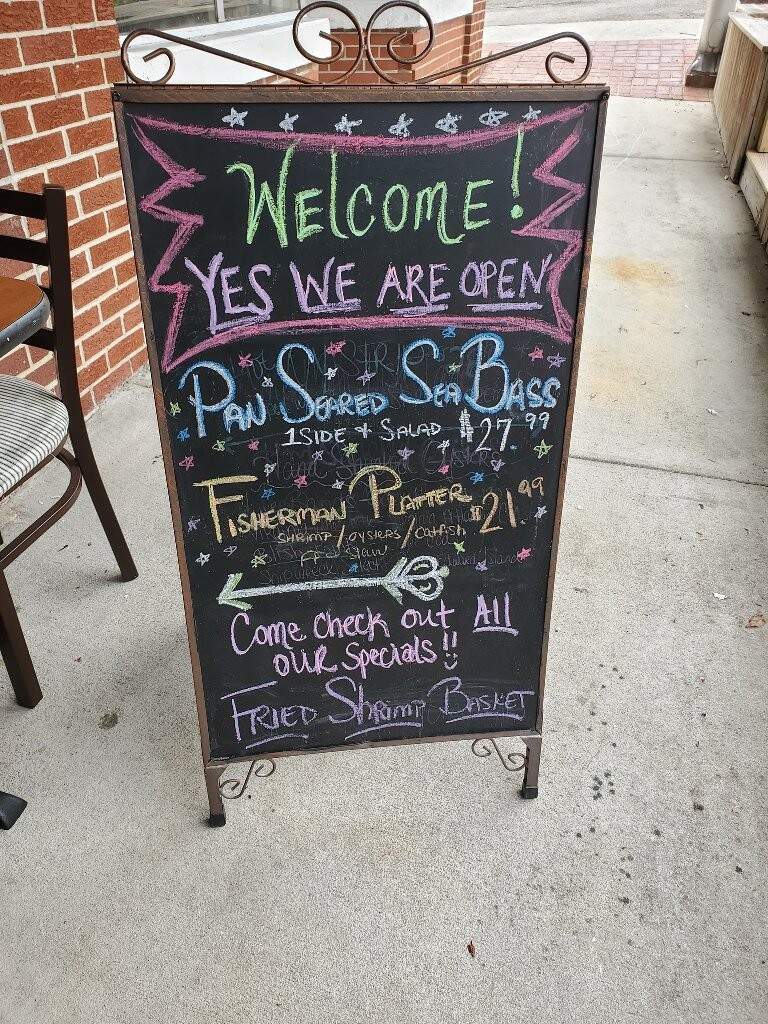 Welcome!
YES WE ARE OPEN
PAN SEARED SEA BASS
1 SIDE + SALAD $27.99
FISHERMAN PLATTER
$21.99
SHRIMP/OYSTERS/CATFISH
FF + Slaw
Come check out All
OUR Specials!!
FRIED SHRIMP BASKET